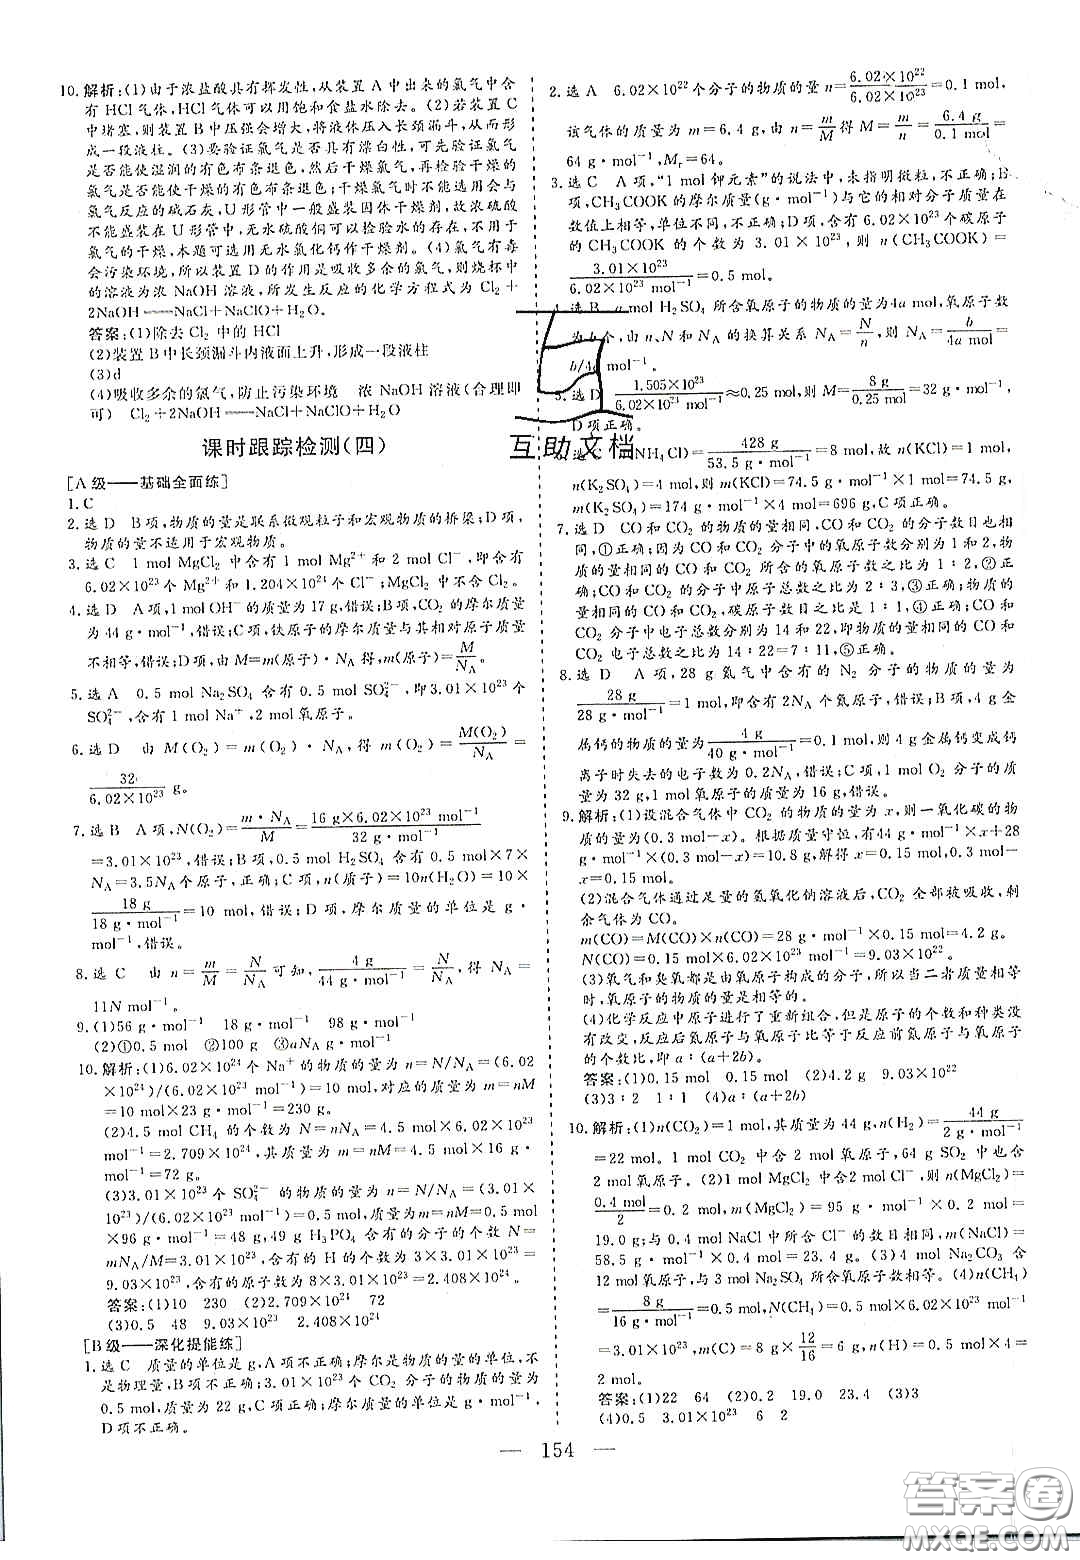 10.解析:(1)由于浓盐酸具有挥发性,从装置A中出来的氯气中含
有HCl气体,HCl气体可以用饱和食盐水除去。(2)若装置C
中堵塞,则装置B中压强会增大,将液体压入长颈漏斗中,从而
形成一段液柱。(3)要验证氯气是否具有漂白性,可先验证氯气
是否能使湿润的有色布条退色,然后干燥氯气,再检验干燥的
氯气是否能使干燥的有色布条退色;干燥氯气时不能选用会与
氯气反应的碱石灰,U形管中一般盛装固体干燥剂,故浓硫酸
不能盛装在U形管中,无水硫酸铜可以检验水的存在,不用于
气体的干燥,本题可选用无水氯化钙作干燥剂。(4)氯气有毒
会污染环境,所以装置D的作用是吸收多余的氯气,则烧杯中
的溶液为浓NaOH溶液,所发生反应的化学方程式为Cl₂+
2NaOH══NaCl+NaClO+H₂O。
答案:(1)除去Cl₂中的HCl
(2)装置B中长颈漏斗内液面上升,形成一段液柱
(3)d
(4)吸收多余的氯气,防止污染环境 浓NaOH溶液(合理即
可) Cl₂+2NaOH══NaCl+NaClO+H₂O
课时跟踪检测(四)
[A级——基础全面练]
1.C
2.选D B项,物质的量是联系微观粒子和宏观物质的桥梁;D项,
物质的量不适用于宏观物质。
3.选C 1 mol MgCl₂中含有1 mol Mg²⁺和2 mol Cl⁻,即含有
6.02×10²³个Mg²⁺和1.204×10²⁴个Cl⁻;MgCl₂中不含Cl₂。
4.选D A项,1 mol OH⁻的质量为17 g,错误;B项,CO₂的摩尔质量
为44 g·mol⁻¹,错误;C项,铁原子的摩尔质量与其相对原子质量
不相等,错误;D项,由M=m(原子)·N_A得,m(原子)=M/N_A。
5.选A 0.5 mol Na₂SO₄含有0.5 mol SO₄²⁻,即3.01×10²³个
SO₄²⁻,含有1 mol Na⁺,2 mol氧原子。
6.选D 由M(O₂)=m(O₂)·N_A,得m(O₂)=M(O₂)/N_A=
32/(6.02×10²³) g。
7.选B A项,N(O₂)=m·N_A/M=(16 g×6.02×10²³ mol⁻¹)/(32 g·mol⁻¹)
=3.01×10²³,错误;B项,0.5 mol H₂SO₄含有0.5 mol×7×
N_A=3.5N_A个原子,正确;C项,n(质子)=10n(H₂O)=10×
18 g/(18 g·mol⁻¹)=10 mol,错误;D项,摩尔质量的单位是g·
mol⁻¹,错误。
8.选C 由n=m/M=N/N_A可知,4 g/(44 g·mol⁻¹)=N/N_A,得N_A=
11N mol⁻¹。
9.(1)56 g·mol⁻¹ 18 g·mol⁻¹ 98 g·mol⁻¹
(2)①0.5 mol ②100 g ③aN_A g·mol⁻¹
10.解析:(1)6.02×10²⁴个Na⁺的物质的量为n=N/N_A=(6.02
×10²⁴)/(6.02×10²³ mol⁻¹)=10 mol,对应的质量为m=nM
=10 mol×23 g·mol⁻¹=230 g。
(2)4.5 mol CH₄的个数为N=nN_A=4.5 mol×6.02×10²³
mol⁻¹=2.709×10²⁴,质量为m=nM=4.5 mol×16 g·
mol⁻¹=72 g。
(3)3.01×10²³个SO₄²⁻的物质的量为n=N/N_A=(3.01×
10²³)/(6.02×10²³ mol⁻¹)=0.5 mol,质量为m=nM=0.5 mol
×96 g·mol⁻¹=48 g,49 g H₃PO₄含有的分子的个数N=
mN_A/M=3.01×10²³,含有的H的个数为3×3.01×10²³=
9.03×10²³,含有的原子数为8×3.01×10²³=2.408×10²⁴。
答案:(1)10 230 (2)2.709×10²⁴ 72
(3)0.5 48 9.03×10²³ 2.408×10²⁴
[B级——深化提能练]
1.选C 质量的单位是g,A项不正确;摩尔是物质的量的单位,不
是物理量,B项不正确;3.01×10²³个CO₂分子的物质的量为
0.5 mol,质量为22 g,C项正确;摩尔质量的单位是g·mol⁻¹,
D项不正确。
2.选A 6.02×10²²个分子的物质的量n=(6.02×10²²)/(6.02×10²³)=0.1 mol,
该气体的质量为m=6.4 g,由n=m/M得M=m/n=6.4 g/0.1 mol=
64 g·mol⁻¹,Mᵣ=64。
3.选C A项,“1 mol钾元素”的说法中,未指明微粒,不正确;B
项,CH₃COOK的摩尔质量(g·mol⁻¹)与它的相对分子质量在
数值上相等,单位不同,不正确;D项,含有6.02×10²³个碳原子
的CH₃COOK的个数为3.01×10²³,则n(CH₃COOK)=
(3.01×10²³)/(6.02×10²³ mol⁻¹)=0.5 mol。
4.选B a mol H₂SO₄所含氧原子的物质的量为4a mol,氧原子数
为b个,由n、N和N_A的换算关系N_A=N/n,则N_A=b/(4a mol)=
b/4a mol⁻¹。
5.选D (1.505×10²³)/(6.02×10²³ mol⁻¹)≈0.25 mol,则M=8 g/0.25 mol=32 g·mol⁻¹,
D项正确。
6.选C n(NH₄Cl)=428 g/(53.5 g·mol⁻¹)=8 mol,故n(KCl)=8 mol,
n(K₂SO₄)=4 mol,则m(K₂SO₄)=n(K₂SO₄)×
m(K₂SO₄)=174 g·mol⁻¹×4 mol=696 g,C项正确。
7.选D CO和CO₂的物质的量相同,CO和CO₂的分子数目也相
同,①正确;因为CO和CO₂分子中的氧原子分别为1和2,则物
质的量相同的CO和CO₂所含的氧原子数之比为1∶2,②正
确;CO和CO₂分子中原子总数之比为2∶3,③正确;物质的
量相同的CO和CO₂,碳原子数目之比为1∶1,④正确;CO和
CO₂分子中电子总数分别为14和22,即物质的量相同的CO和
CO₂电子总数之比为14∶22=7∶11,⑤正确。
8.选D A项,28 g氮气中含有的N₂分子的物质的量为
28 g/(28 g·mol⁻¹)=1 mol,即含有2N_A个氮原子,错误;B项,4 g金
属钙的物质的量为4 g/(40 g·mol⁻¹)=0.1 mol,则4 g金属钙变成钙
离子时失去的电子数为0.2N_A,错误;C项,1 mol O₂分子的质
量为32 g,1 mol氧原子的质量为16 g,错误。
9.解析:(1)设混合气体中CO₂的物质的量为x,则一氧化碳的物
质的量为(0.3 mol-x)。根据质量守恒,有44 g·mol⁻¹×x+28
g·mol⁻¹×(0.3 mol-x)=10.8 g,解得x=0.15 mol,则n(CO)
=0.15 mol。
(2)混合气体通过足量的氢氧化钠溶液后,CO₂全部被吸收,剩
余气体为CO。
m(CO)=M(CO)×n(CO)=28 g·mol⁻¹×0.15 mol=4.2 g。
N(CO)=0.15 mol×6.02×10²³ mol⁻¹=9.03×10²²。
(3)氧气和臭氧都是由氧原子构成的分子,所以当二者质量相等
时,氧原子的物质的量是相等的。
(4)化学反应中原子进行了重新组合,但是原子的个数和种类没
有改变,反应后氮原子与氧原子比等于反应前氮原子与氧原子
的个数比,即a∶(a+2b)。
答案:(1)0.15 mol 0.15 mol (2)4.2 g 9.03×10²²
(3)3∶2 1∶1 (4)a∶(a+2b)
10.解析:(1)n(CO₂)=1 mol,其质量为44 g,n(H₂)=44 g/(2 g·mol⁻¹)
=22 mol。1 mol CO₂中含2 mol氧原子,64 g SO₂中也含
2 mol氧原子。(2)1 mol MgCl₂中含2 mol Cl⁻,则n(MgCl₂)=
0.4 mol/2=0.2 mol,m(MgCl₂)=95 g·mol⁻¹×0.2 mol=
19.0 g;与0.4 mol NaCl中所含Cl⁻的数目相同,m(NaCl)=
58.5 g·mol⁻¹×0.4 mol=23.4 g。(3)4 mol Na₂CO₃含
12 mol氧原子,与3 mol Na₂SO₄所含氧原子数相等。(4)n(CH₄)
=8 g/(16 g·mol⁻¹)=0.5 mol,N(CH₄)=0.5 mol×6.02×10²³ mol⁻¹
=3.01×10²³,m(C)=8 g×12/16=6 g,n(H)=0.5 mol×4=
2 mol。
答案:(1)22 64 (2)0.2 19.0 23.4 (3)3
(4)0.5 3.01×10²³ 6 2
互助文档
— 154 —
答案圈
MXQE.COM